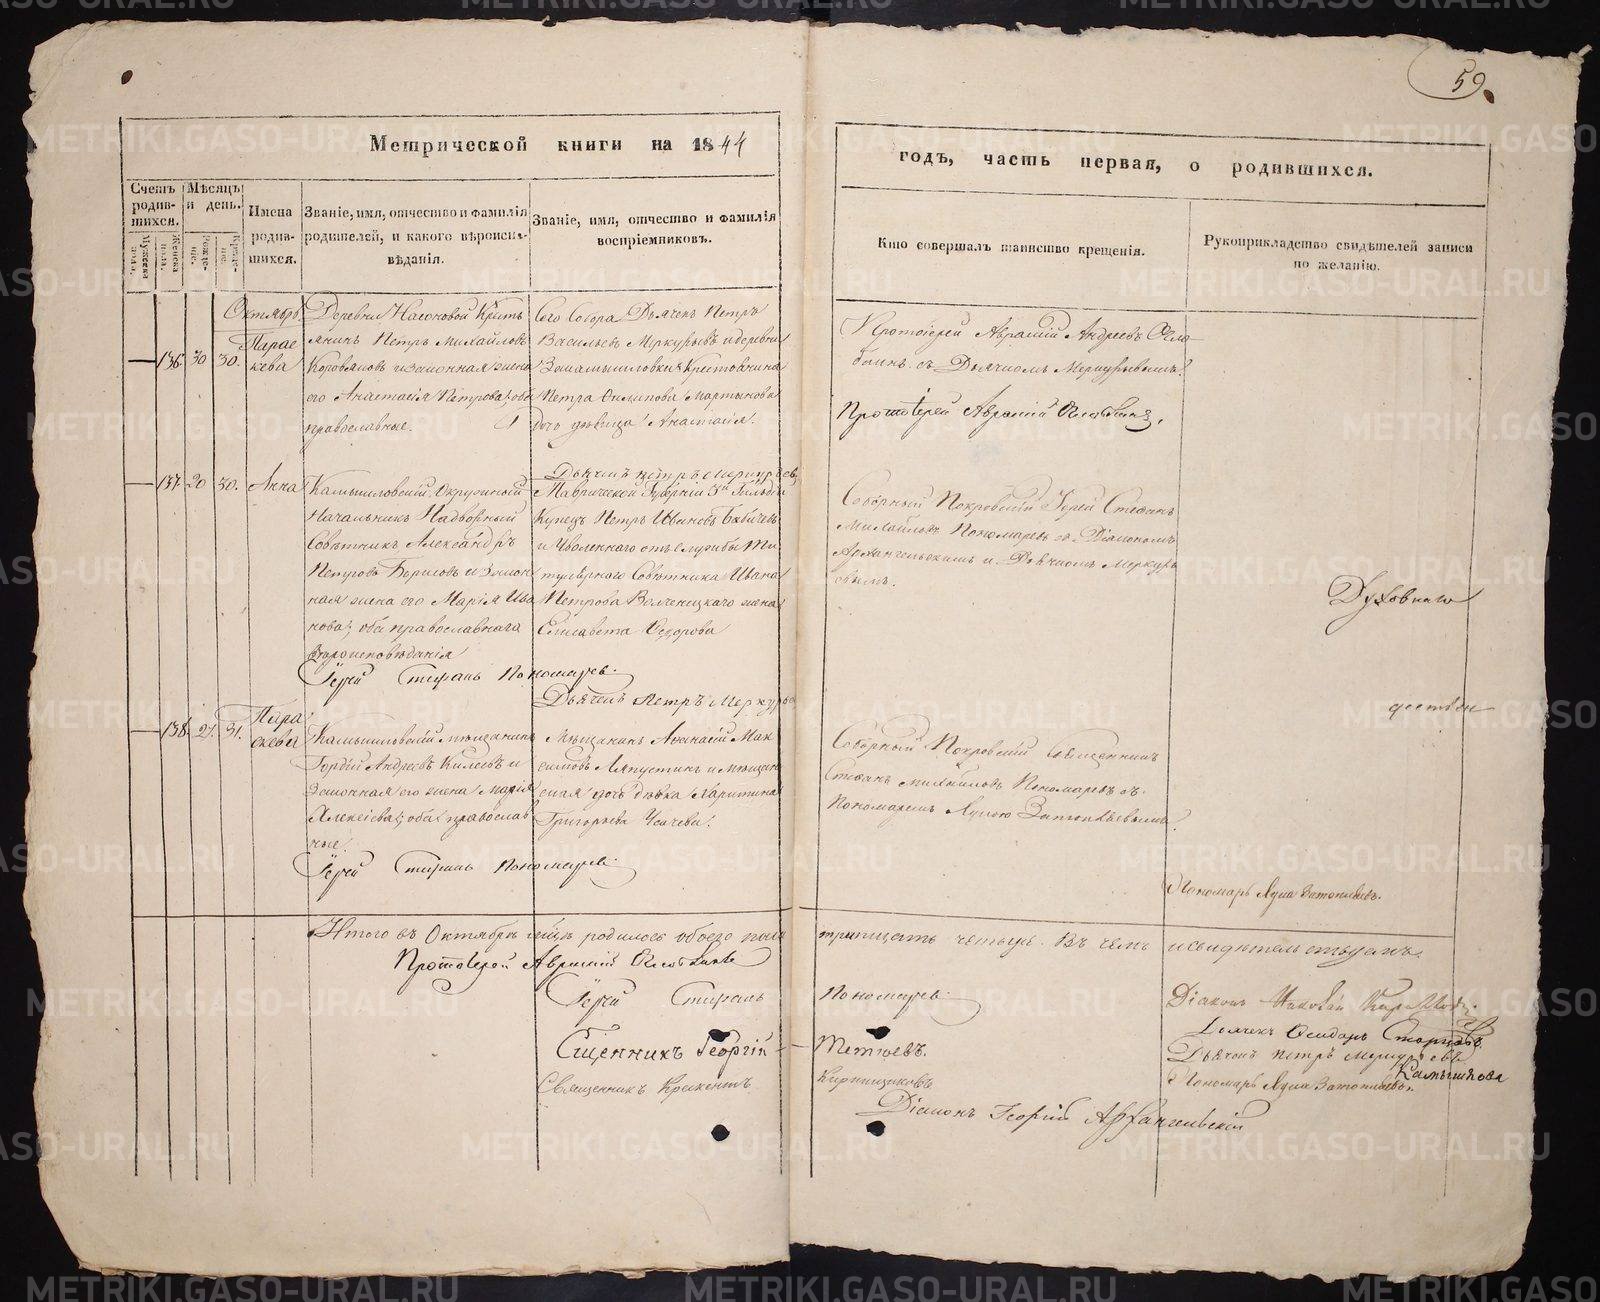 59.
Метрической книги на 1844
годъ, часть первая, о родившихся.
Счетъ родив-шихся.
Мужеска пола.
Женска пола.
Мѣсяцъ и день.
Рожде-ніе.
Креще-ніе.
Имена родив-шихся.
Званіе, имя, отчество и фамилія родителей, и какого вѣроиспо-вѣданія.
Званіе, имя, отчество и фамилія воспріемниковъ.
Кто совершалъ таинство крещенія.
Рукоприкладство свидѣтелей записи по желанію.
Октябрь
136 30 30.
Парас
кева
Деревни Насоновой Кресть
янинъ Петръ Михайловъ
Коровяковъ и законная жена
его Анастасія Петрова; оба
православные.
Сего Собора Дьячекъ Петръ
Васильевъ Меркурьевъ и деревни
Петра Мартынова
дочь дѣвица Анастасія.
Протоіерей Аврамій Андреевъ
съ Дьячкомъ Меркурьевымъ.
Протоіерей Аврамій
Дьячекъ Петръ Меркурьевъ
137 20 30.
Анна
Камышловскій Окружной
Начальникъ Надворный
Совѣтникъ Александръ
Петровъ Борисовъ и Закон
ная жена его Марія Ива
нова; оба православнаго
вѣроисповѣданія
Іерей Стефанъ Пономаревъ.
Губерніи 3й Гильдіи
Купецъ Петръ Ивановъ Бабичевъ
и Уволеннаго отъ службы Ти
тулярнаго Совѣтника Ивана
Петрова жена
Елисавета Ѳедорова
Дьячекъ Петръ Меркурьевъ
Соборный Покровскій Іерей Стефанъ
Михайловъ Пономаревъ съ Діакономъ
Архангельскимъ и Дьячкомъ Меркурь
евымъ.
Духовнаго
138. 27. 31.
Пара
скева
Камышловскій мѣщанинъ
Гордій Андреевъ и
Законная его жена Марія
Алексѣева; оба православ
ные.
Іерей Стефанъ Пономаревъ.
Мѣщанинъ Аѳанасій Мак
симовъ Ляпустинъ и мѣщан
ская дочь дѣвка Харитина
Григорьева Усачева.
Соборный Покровскій Священникъ
Стефанъ Михайловъ Пономаревъ съ
Пономаремъ Лукою Затопляевымъ.
Пономарь Лука Затопляевъ.
Итого въ Октябрѣ мцѣ родилось обоего пола тритцать четыре. Въ чемъ и свидѣтельствуемъ.
Протоіерей Аврамій
Іерей Стефанъ Пономаревъ.
Діаконъ Николай
Сщенникъ Георгій Тетюевъ.
Дьячекъ Петръ Меркурьевъ
Священникъ Кирпищиковъ
Пономарь Лука Затопляевъ.
Діаконъ Георгій Архангельскій
METRIKI.GASO-URAL.RU